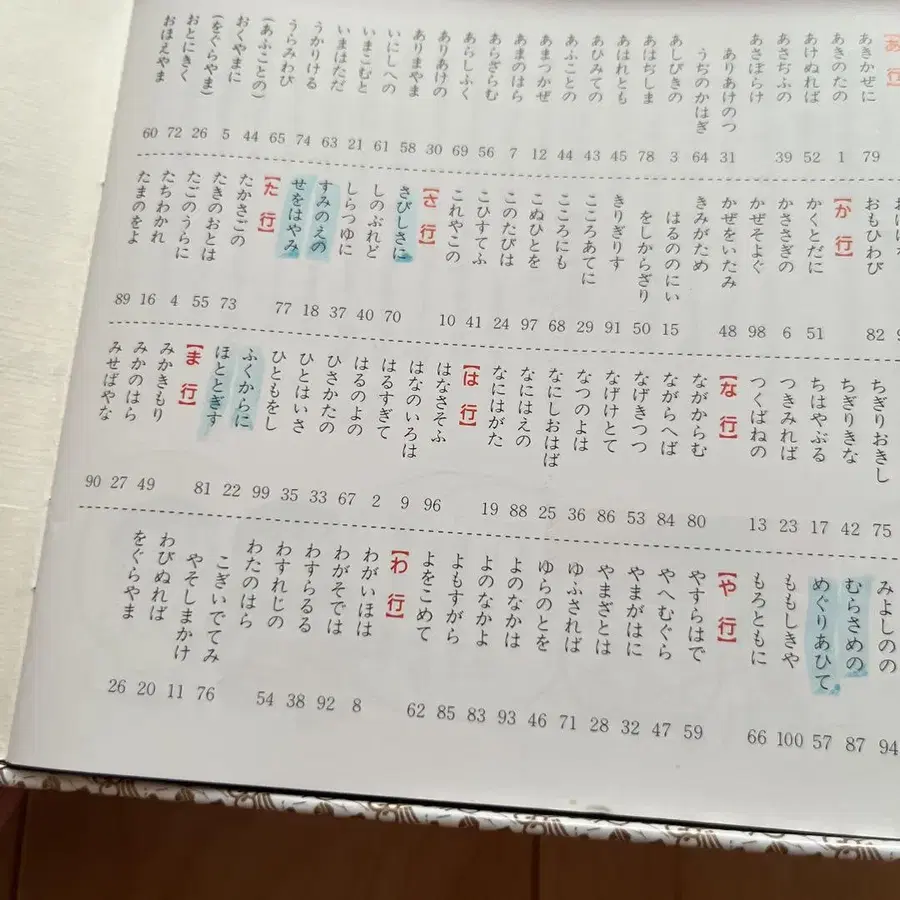 【あ行】
あきかぜに 79
あきのたの 1
あけぬれば 52
あさぢふの 39
あさぼらけ
ありあけのつ 31
うぢのかはぎ 64
あしびきの 3
あはぢしま 78
あはれとも 45
あひみての 43
あふことの 44
あまつかぜ 12
あまのはら 7
あらざらむ 56
あらしふく 69
ありあけの 30
ありまやま 58
いにしへの 61
いまこむと 21
いまはただ 63
うかりける 74
うらみわび 65
(あふことの) 44
おくやまに 5
(をぐらやま) 26
おとにきく 72
おほえやま 60
おもひわび 82
【か行】
かくとだに 51
かささぎの 6
かぜそよぐ 98
かぜをいたみ 48
きみがため
はるののにい 15
をしからざり 50
きりぎりす 91
こころあてに 29
こころにも 68
こぬひとを 97
このたびは 24
こひすてふ 41
これやこの 10
【さ行】
さびしさに 70
しのぶれど 40
しらつゆに 37
すみのえの 18
せをはやみ 77
【た行】
たかさごの 73
たきのおとは 55
たごのうらに 4
たちわかれ 16
たまのをよ 89
ちぎりおきし 75
ちぎりきな 42
ちはやぶる 17
つきみれば 23
つくばねの 13
【な行】
ながからむ 80
ながらへば 84
なげきつつ 53
なげけとて 86
なつのよは 36
なにしおはば 25
なにはえの 88
なにはがた 19
【は行】
はなさそふ 96
はなのいろは 9
はるすぎて 2
はるのよの 67
ひさかたの 33
ひとはいさ 35
ひともをし 99
ふくからに 22
ほととぎす 81
【ま行】
みかきもり 49
みかのはら 27
みせばやな 90
みよしのの 94
むらさめの 87
めぐりあひて 57
ももしきや 100
もろともに 66
【や行】
やすらはで 59
やへむぐら 47
やまがはに 32
やまざとは 28
ゆふされば 71
ゆらのとを 46
よのなかは 93
よのなかよ 83
よもすがら 85
よをこめて 62
【わ行】
わがいほは 8
わがそでは 92
わすらるる 38
わすれじの 54
わたのはら
こぎいでてみ 76
やそしまかけ 11
わびぬれば 20
をぐらやま 26